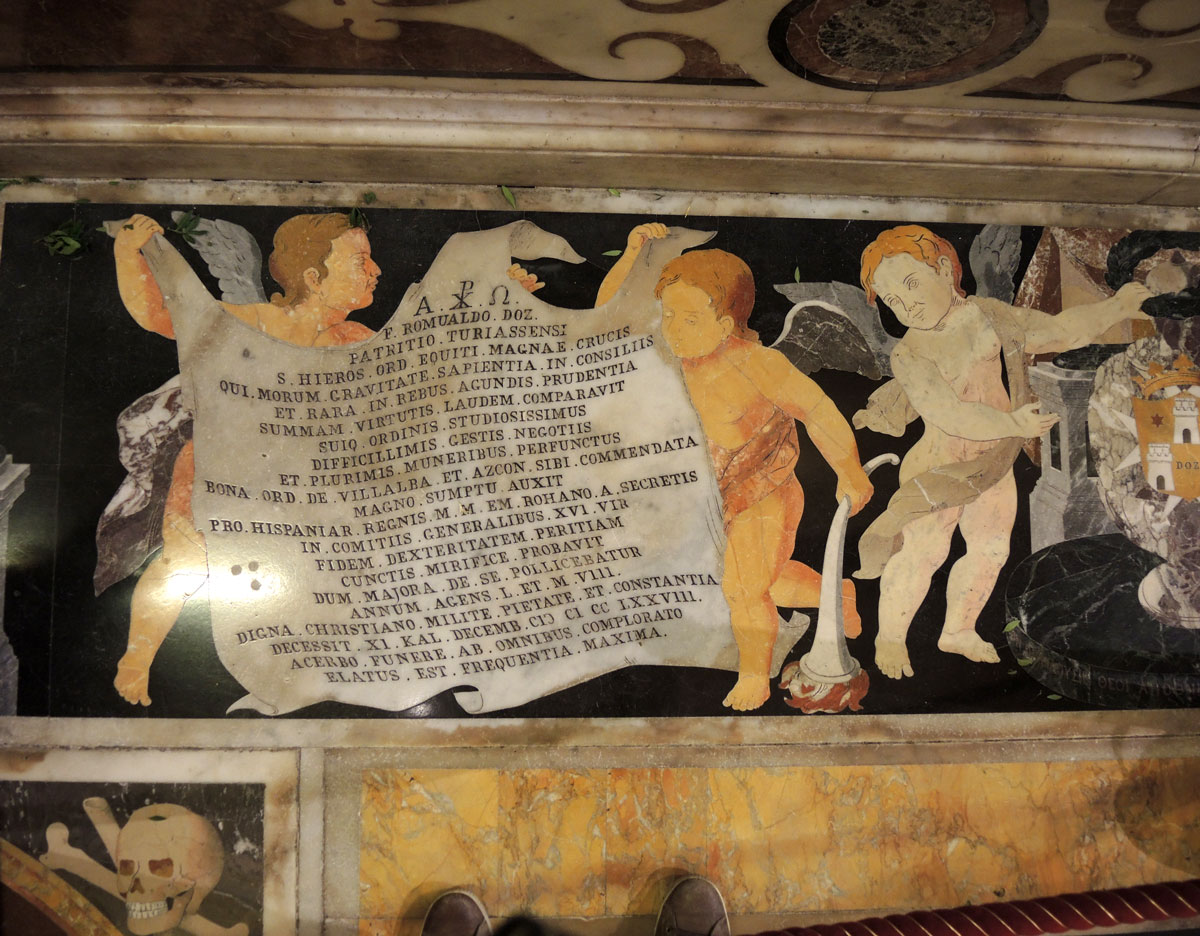 A . ⳩ . Ω .
F . ROMUALDO . DOZ .
PATRITIO . TURIASSENSI
S . HIEROS . ORD . EQUITI . MAGNAE . CRUCIS
QUI . MORUM . GRAVITATE . SAPIENTIA . IN . CONSILIIS
ET . RARA . IN . REBUS . AGUNDIS . PRUDENTIA
SUMMAM . VIRTUTIS . LAUDEM . COMPARAVIT
SUIQ . ORDINIS . STUDIOSISSIMUS
DIFFICILLIMIS . GESTIS . NEGOTIIS
ET . PLURIMIS . MUNERIBUS . PERFUNCTUS
BONA . ORD . DE . VILLALBA . ET . AZCON . SIBI . COMMENDATA
MAGNO . SUMPTU . AUXIT
PRO . HISPANIAR . REGNIS . M . M . EM . ROHANO . A . SECRETIS
IN . COMITIIS . GENERALIBUS . XVI . VIR
FIDEM . DEXTERITATEM . PERITIAM
CUNCTIS . MIRIFICE . PROBAVIT
DUM . MAJORA . DE . SE . POLLICEBATUR
ANNUM . AGENS . L . ET . M . VIII .
DIGNA . CHRISTIANO . MILITE . PIETATE . ET . CONSTANTIA
DECESSIT . XI . KAL . DECEMB . CIↃ CI CC LXXVIII .
ACERBO . FUNERE . AB . OMNIBUS . COMPLORATO
ELATUS . EST . FREQUENTIA . MAXIMA .
DOZ